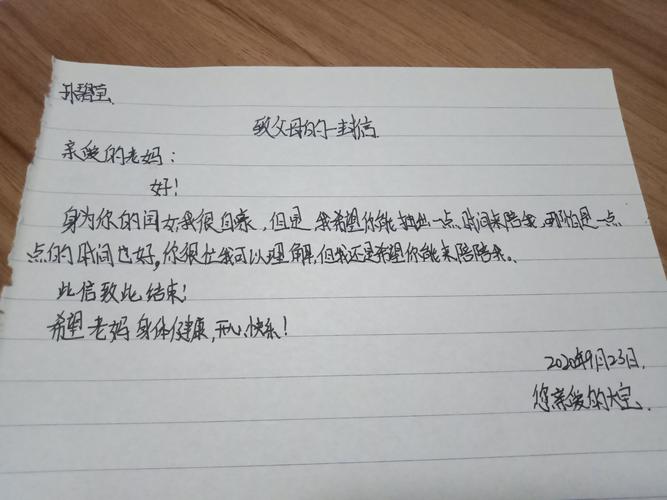 孙碧莹
致父母的一封信
亲爱的老妈:
好!
身为你的闺女我很自豪,但是 我希望你能抽出一点时间来陪我,哪怕是一点
点的时间也好,你很忙我可以理解,但我还是希望你能来陪陪我。
此信致此结束!
希望老妈身体健康,开心快乐!
2020年9月23日.
您亲爱的大宝.